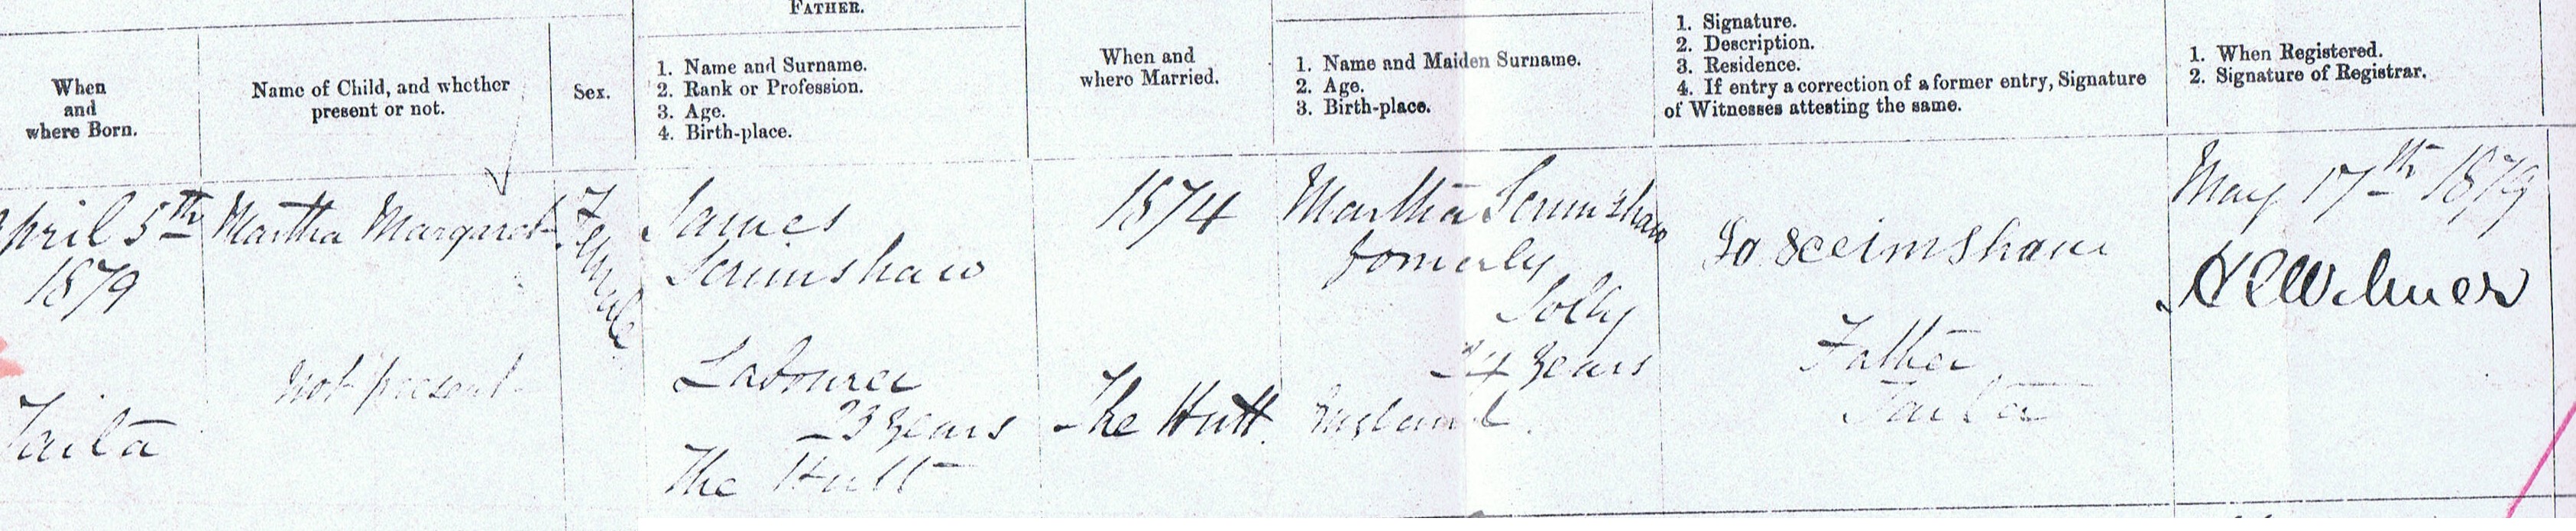 When
and
where Born.
Name of Child, and whether
present or not.
Sex.
FATHER.
1. Name and Surname.
2. Rank or Profession.
3. Age.
4. Birth-place.
When and
where Married.
1. Name and Maiden Surname.
2. Age.
3. Birth-place.
1. Signature.
2. Description.
3. Residence.
4. If entry a correction of a former entry, Signature
of Witnesses attesting the same.
1. When Registered.
2. Signature of Registrar.
April 5th
1879
Taita
Martha Margaret
not present
Female
James
Scrimshaw
Labourer
23 years
The Hutt
1874
The Hutt
Martha Scrimshaw
formerly
Jolly
24 years
England
Scrimshaw
Father
Taita
May 17th 1879